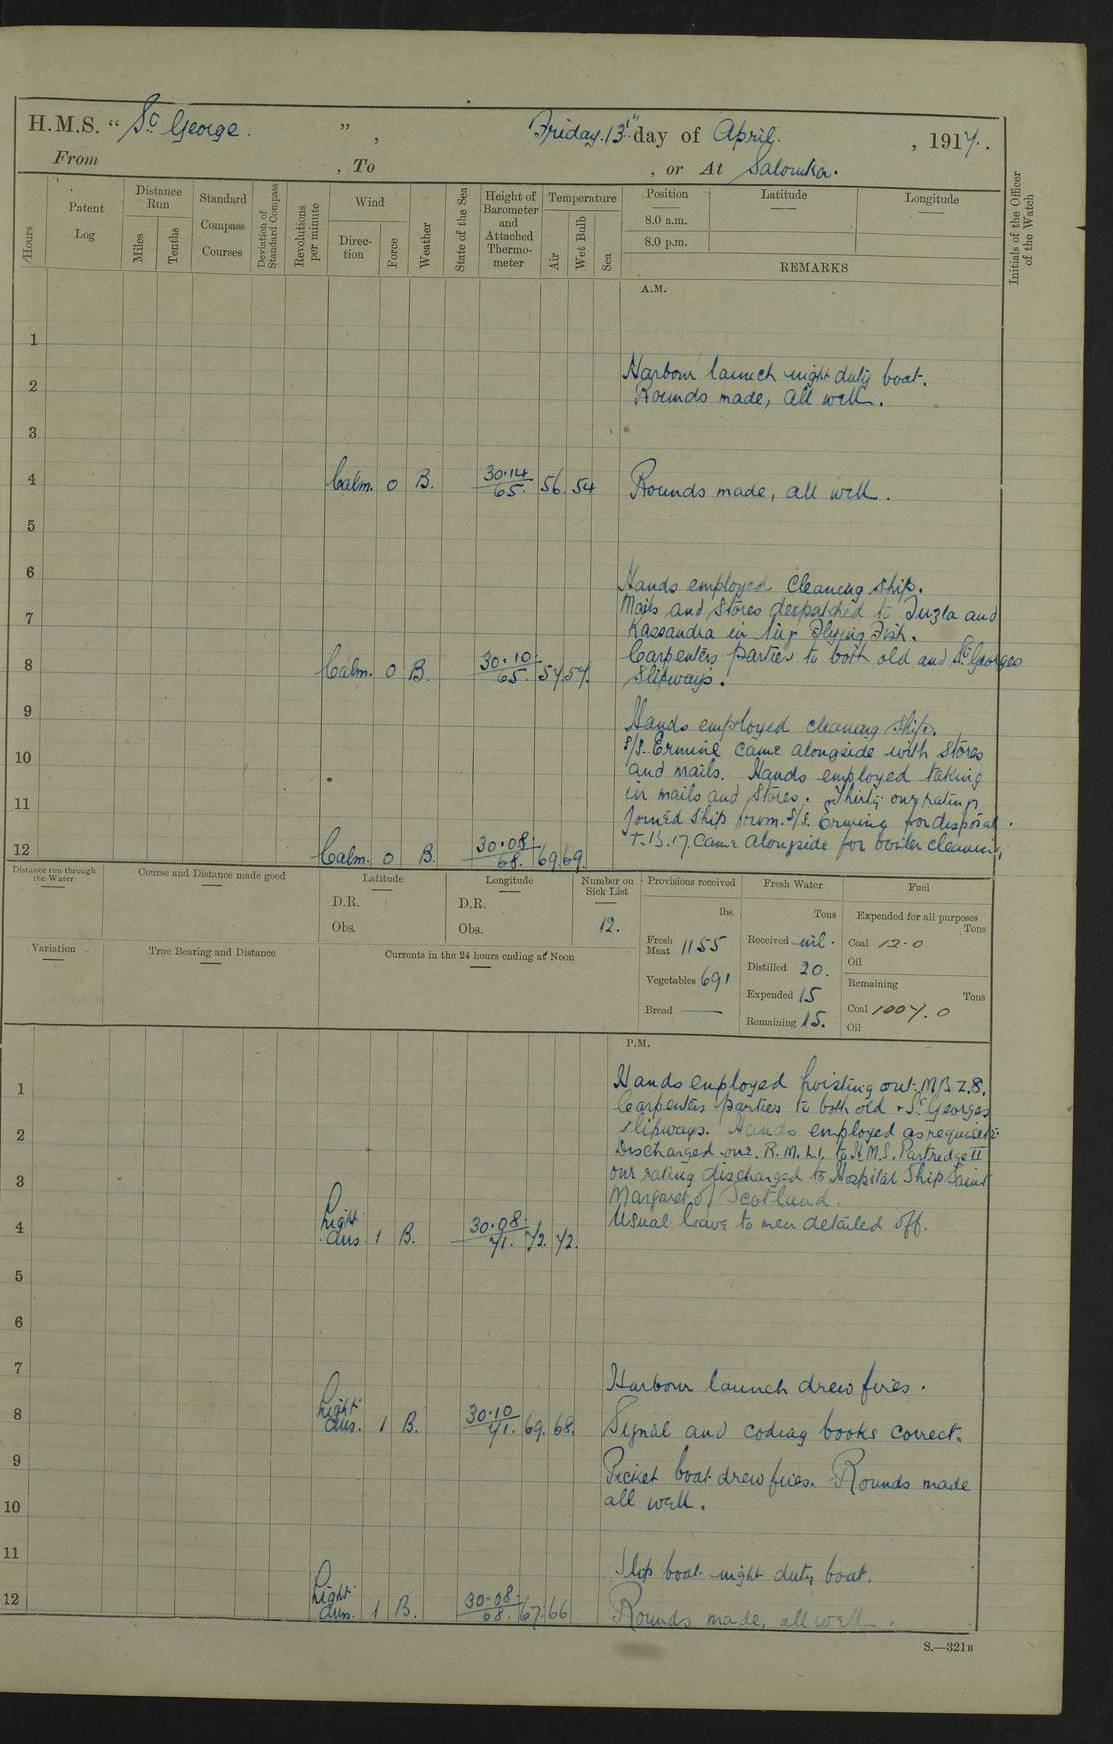 H.M.S. “ St George. ” , Friday. 13th day of April. , 1917.
From , To , or At Salonika.
Hours
Patent Log
Distance Run
Miles
Tenths
Standard Compass Courses
Deviation of Standard Compass
Revolutions per minute
Wind
Direction
Force
Weather
State of the Sea
Height of Barometer and Attached Thermometer
Temperature
Air
Wet Bulb
Sea
Position Latitude Longitude
8.0 a.m.
8.0 p.m.
REMARKS
Initials of the Officer of the Watch
A.M.
1
Harbour launch night duty boat.
2
Rounds made, all well.
3
4 Calm. 0 B. 30.14 65. 56. 54 Rounds made, all well.
5
6
Hands employed cleaning ship.
Mails and stores despatched to Tuzla and
7
Kassandra in tug Flying Fish.
Carpenters parties to both old and St. Georges
8 Calm. 0 B. 30.10 65. 57. 57. Slipways.
9
Hands employed cleaning ship.
S/S. Ermine came alongside with stores
10
and mails. Hands employed taking
in mails and stores. Thirty one ratings
11
joined ship from S/S. Ermine for disposal.
12 Calm. 0 B. 30.08 68. 69. 69. T.B. 17. came alongside for boiler cleaning
Distance run through the Water
Course and Distance made good
Latitude
D.R.
Obs.
Longitude
D.R.
Obs.
Number on Sick List
12.
Provisions received
lbs.
Fresh Meat 1155
Vegetables 691
Bread —
Fresh Water
Tons
Received nil.
Distilled 20.
Expended 15
Remaining 15.
Fuel
Expended for all purposes
Tons
Coal 12.0
Oil
Remaining
Tons
Coal 1007.0
Oil
Variation
True Bearing and Distance
Currents in the 24 hours ending at Noon
P.M.
1 Hands employed hoisting out. M.B.Z.8.
Carpenters parties to both old + St. Georges
2 slipways. Hands employed as requisite
Discharged one. R.M.L.I. to H.M.S. Partridge II
3 one rating discharged to Hospital Ship Saint
Margaret of Scotland.
4 Light airs 1 B. 30.08 71. 72. 72. Usual leave to men detailed off.
5
6
7
Harbour launch drew fires.
8 Light airs. 1 B. 30.10 71. 69. 68. Signal and coding books correct.
9
Picket boat drew fires. Rounds made
10 all well.
11
Slip boat night duty boat.
12 Light airs. 1 B. 30.08 68. 67. 66 Rounds made, all well.
S.—321B